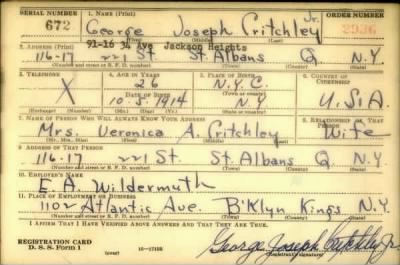 SERIAL NUMBER 1. NAME (Print) ORDER NUMBER
672 George Joseph Critchley Jr. 2936
(First) (Middle) (Last)
91-16 34 Ave Jackson Heights
2. ADDRESS (Print)
116-17 221 St. St. Albans Q. N.Y.
(Number and street or R. F. D. number) (Town) (County) (State)
3. TELEPHONE 4. AGE IN YEARS 5. PLACE OF BIRTH 6. COUNTRY OF CITIZENSHIP
X 26 N.Y.C.
DATE OF BIRTH (Town or county)
10-5-1914 N.Y. U.S.A
(Exchange) (Number) (Mo.) (Day) (Yr.) (State or country)
7. NAME OF PERSON WHO WILL ALWAYS KNOW YOUR ADDRESS 8. RELATIONSHIP OF THAT PERSON
Mrs. Veronica A. Critchley Wife
(Mr., Mrs., Miss) (First) (Middle) (Last)
9. ADDRESS OF THAT PERSON
116-17 221 St. St. Albans Q N.Y.
(Number and street or R. F. D. number) (Town) (County) (State)
10. EMPLOYER'S NAME
E. A. Wildermuth
11. PLACE OF EMPLOYMENT OR BUSINESS
1102 Atlantic Ave. B'Klyn Kings N.Y.
(Number and street or R. F. D. number) (Town) (County) (State)
I AFFIRM THAT I HAVE VERIFIED ABOVE ANSWERS AND THAT THEY ARE TRUE.
REGISTRATION CARD
D. S. S. Form 1 (over) 16-17105 George Joseph Critchley Jr.
(Registrant's signature)